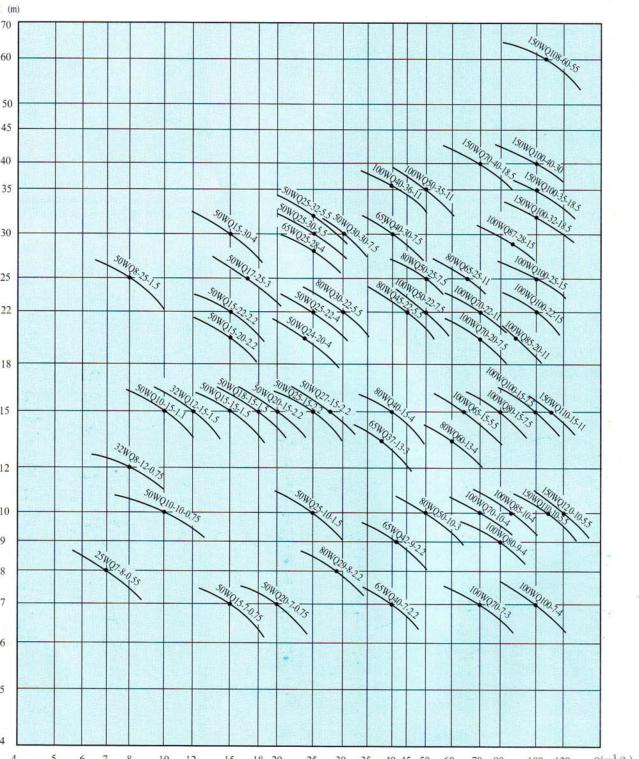 (m)
70
150WQ108-60-55
60
50
45
150WQ100-40-30
150WQ70-40-18.5
40
100WQ50-35-11
100WQ40-36-11
150WQ100-35-18.5
35
50WQ25-32-5.5
150WQ100-32-18.5
50WQ15-30-4
50WQ25-30-5.5
50WQ30-30-7.5
65WQ40-30-7.5
30
65WQ25-28-4
100WQ87-28-15
50WQ8-25-1.5
50WQ17-25-3
80WQ50-25-7.5
80WQ65-25-11
100WQ100-25-15
25
80WQ30-22-5.5
100WQ50-22-7.5
50WQ15-22-2.2
50WQ25-22-4
80WQ45-22-5.5
100WQ70-22-11
100WQ100-22-15
22
50WQ15-20-2.2
50WQ24-20-4
100WQ70-20-7.5
100WQ85-20-11
18
50WQ10-15-1.1
32WQ12-15-1.5
50WQ15-15-1.5
50WQ18-15-1.5
50WQ20-15-2.2
50WQ25-15-2.2
50WQ27-15-2.2
80WQ40-15-4
100WQ65-15-5.5
100WQ80-15-7.5
100WQ100-15-7.5
150WQ110-15-11
15
65WQ37-13-3
80WQ60-13-4
32WQ8-12-0.75
12
50WQ10-10-0.75
50WQ25-10-1.5
80WQ50-10-3
100WQ70-10-4
100WQ85-10-4
150WQ110-10-5.5
150WQ120-10-5.5
10
65WQ42-9-2.2
100WQ80-9-4
9
25WQ7-8-0.55
80WQ29-8-2.2
8
50WQ15-7-0.75
50WQ20-7-0.75
65WQ40-7-2.2
100WQ70-7-3
100WQ100-7-4
7
6
5
4
4 5 6 7 8 10 12 15 18 20 25 30 35 40 45 50 60 70 80 100 120